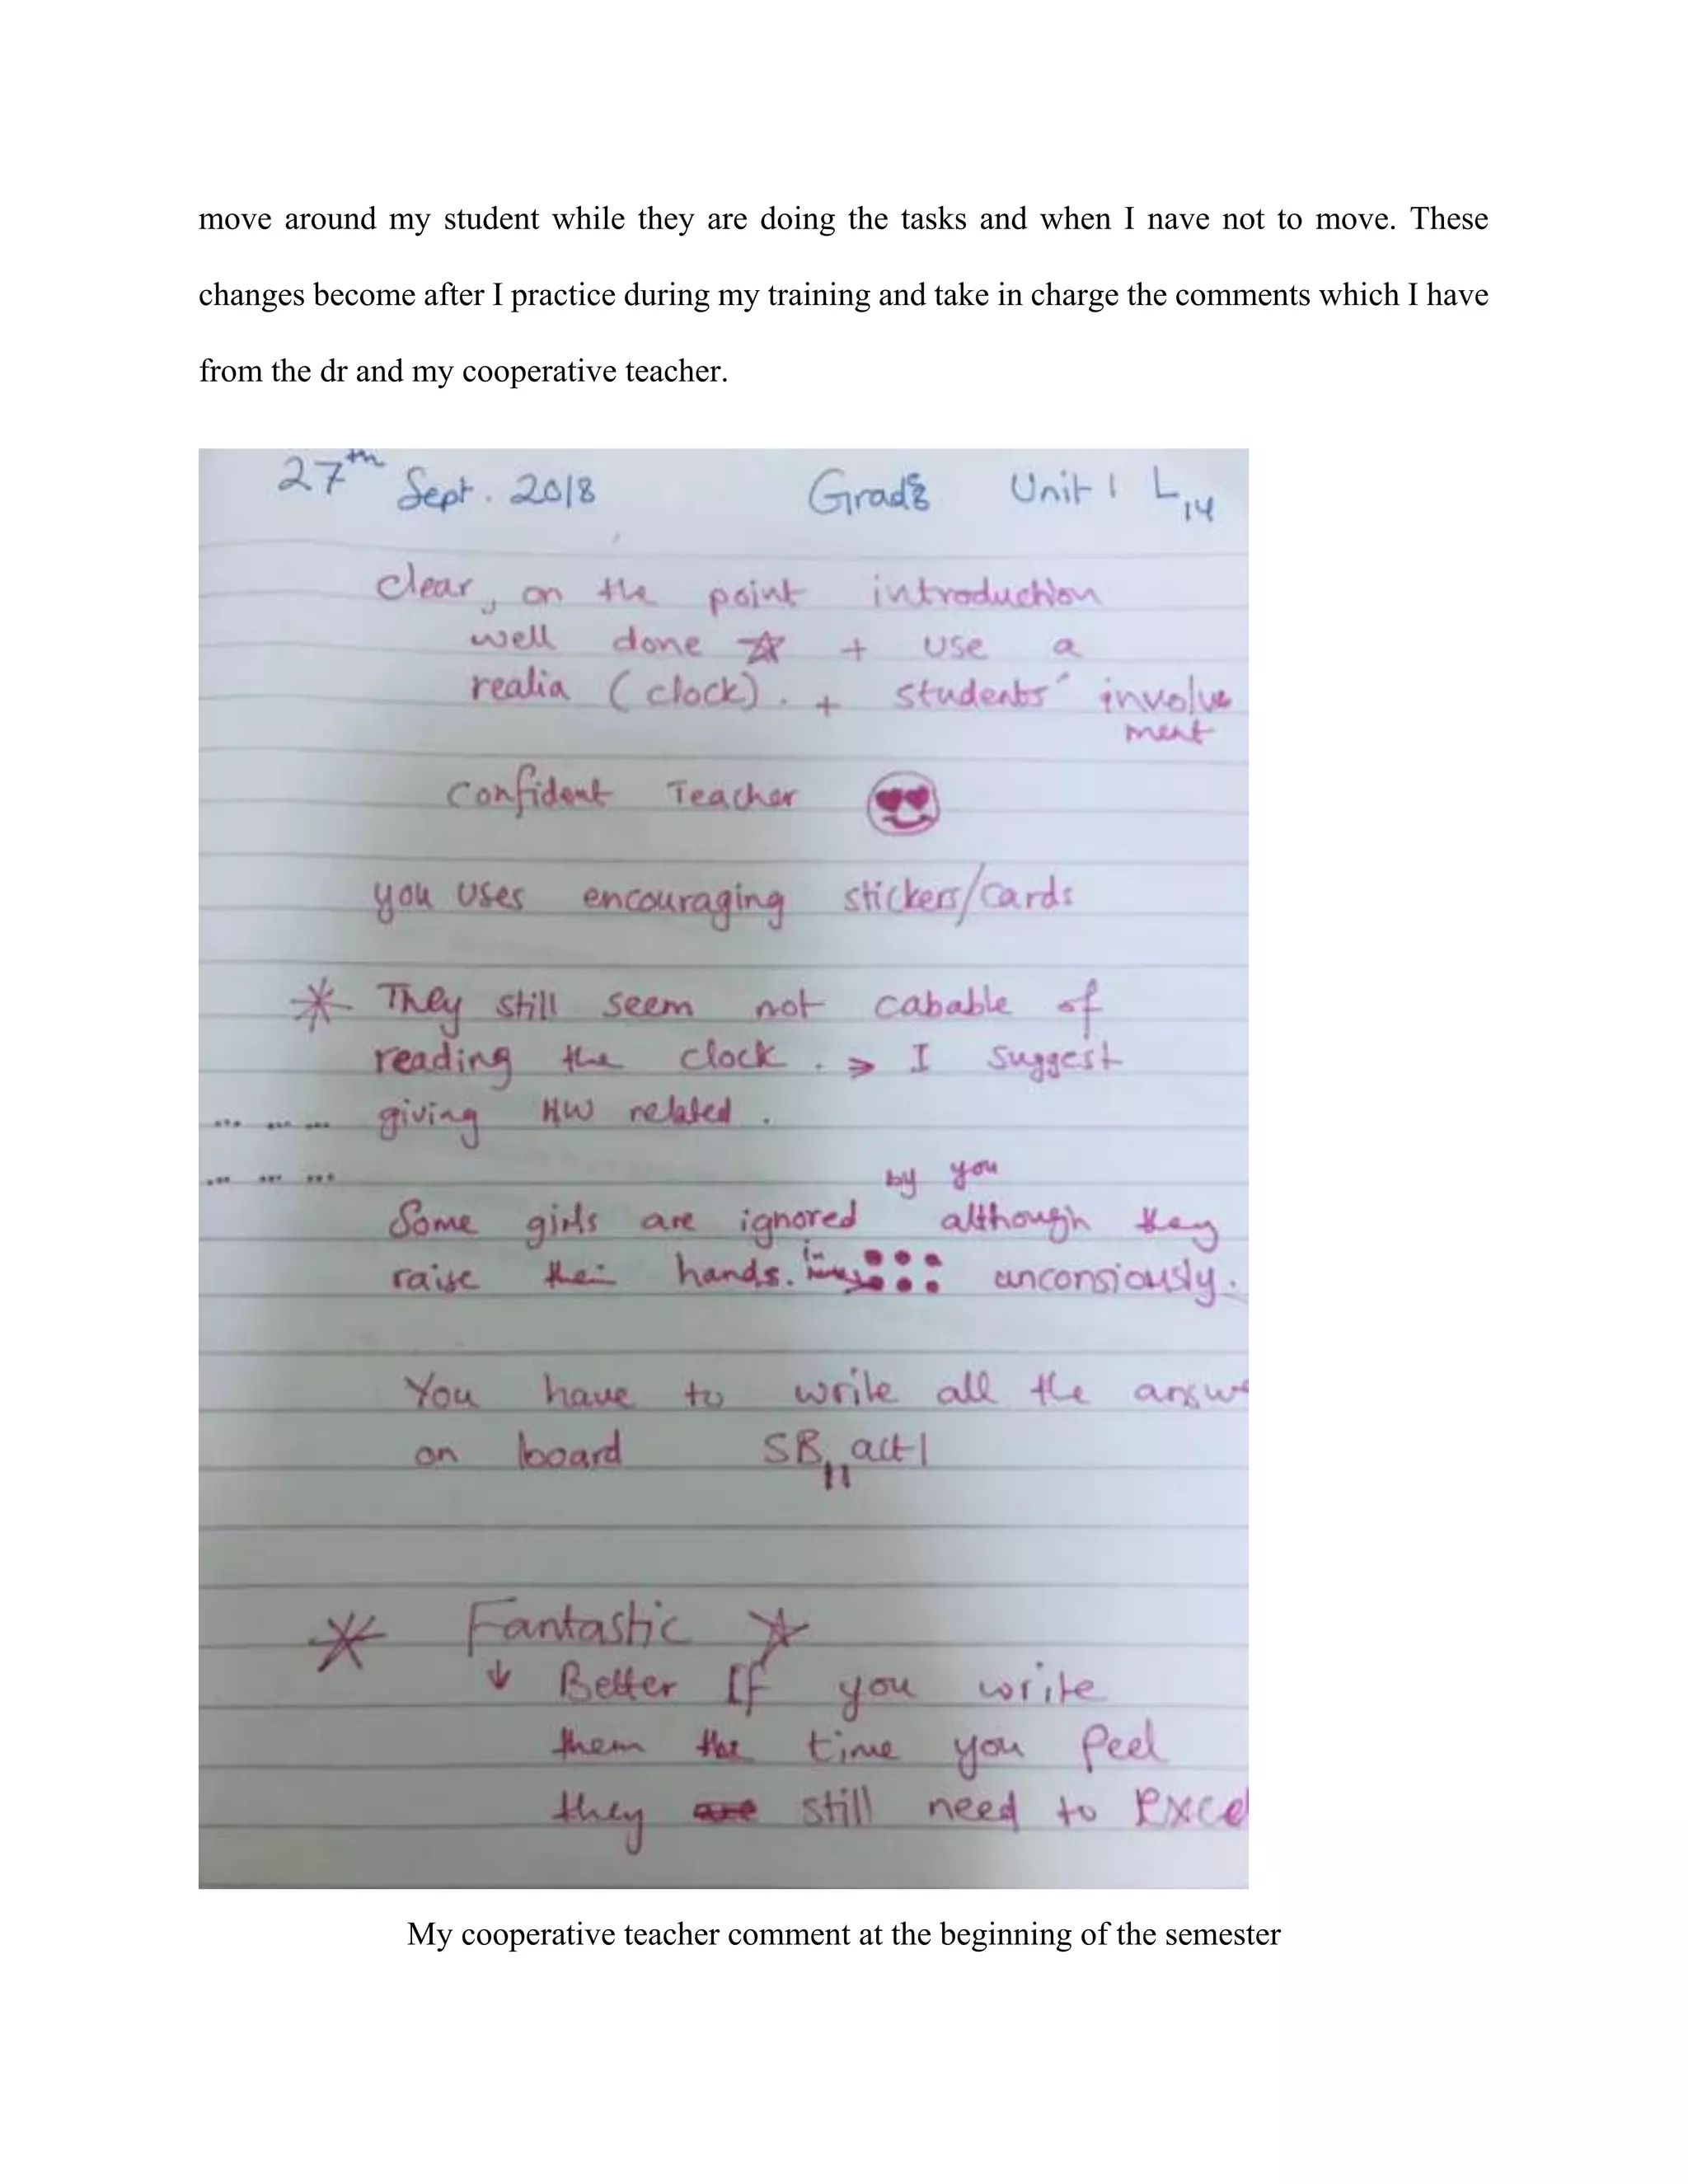 move around my student while they are doing the tasks and when I nave not to move. These
changes become after I practice during my training and take in charge the comments which I have
from the dr and my cooperative teacher.
27th Sept. 2018 Grade Unit 1 L14
clear, on the point introduction
well done + use a
realia (clock). + students' involve
ment
Confident Teacher
you uses encouraging stickers/cards
They still seem not cabable of
reading the clock. I suggest
giving HW related.
by you
Some girls are ignored although they
raise their hands. in unconsiously.
You have to write all the answe
on board SB act 1
Fantastic
Better If you write
them the time you feel
they still need to Excel
My cooperative teacher comment at the beginning of the semester